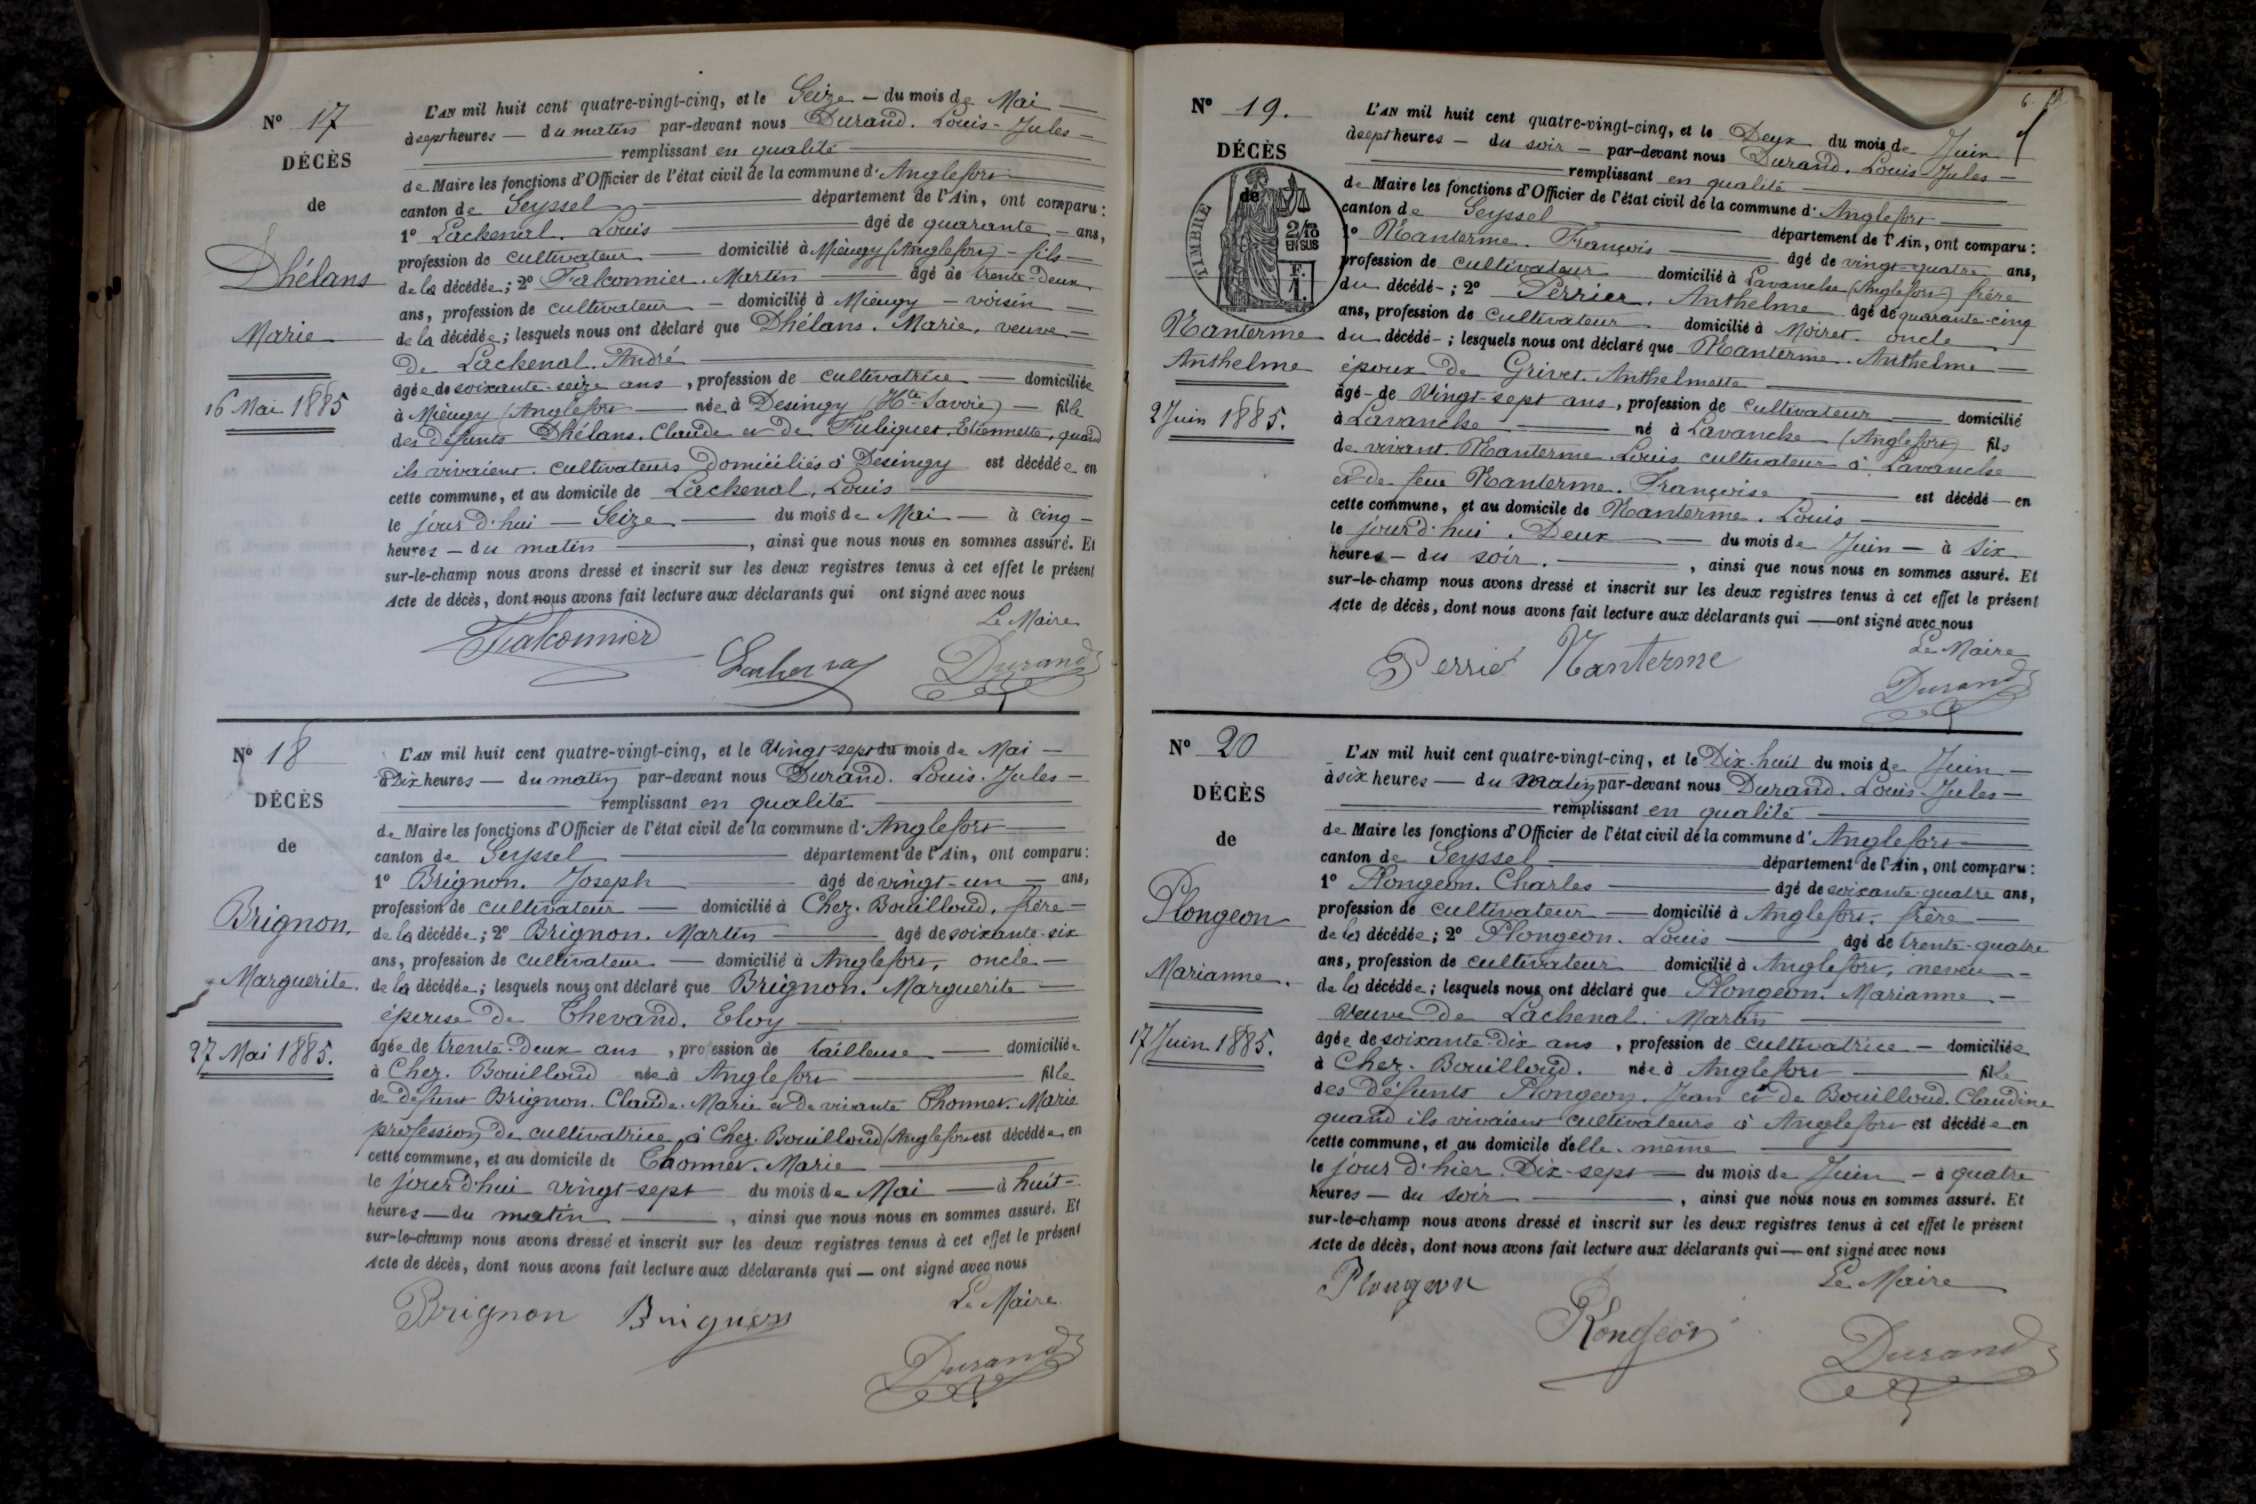 Nº 17
DÉCÈS
de
Dhélans
Marie
16 Mai 1885
L'AN mil huit cent quatre-vingt-cinq, et le Seize du mois de Mai
à sept heures du matin par-devant nous Durand. Louis-Jules
remplissant en qualité
de Maire les fonctions d'Officier de l'état civil de la commune d'Anglefort
canton de Seyssel département de l'Ain, ont comparu :
1º Lachenal. Louis âgé de quarante ans,
profession de cultivateur domicilié à Mieugy (Anglefort) - fils
de la décédée ; 2º Falconnier. Martin âgé de trente-deux
ans, profession de cultivateur domicilié à Mieugy - voisin
de la décédée ; lesquels nous ont déclaré que Dhélans. Marie, veuve
de Lachenal. André
âgée de soixante-seize ans, profession de cultivatrice domiciliée
à Mieugy (Anglefort née à Desingy (Hte Savoie) fille
des défunts Dhélans. Claude et de Etiennette, quand
ils vivaient cultivateurs domiciliés à Desingy est décédée en
cette commune, et au domicile de Lachenal, Louis
le jour d'hui Seize du mois de Mai à cinq
heures du matin, ainsi que nous nous en sommes assuré. Et
sur-le-champ nous avons dressé et inscrit sur les deux registres tenus à cet effet le présent
Acte de décès, dont nous avons fait lecture aux déclarants qui ont signé avec nous
Le Maire
Falconnier Lachenal Durand
Nº 18
DÉCÈS
de
Brignon.
Marguerite.
27 Mai 1885.
L'AN mil huit cent quatre-vingt-cinq, et le Vingt-sept du mois de Mai
à Dix heures du matin par-devant nous Durand. Louis. Jules
remplissant en qualité
de Maire les fonctions d'Officier de l'état civil de la commune d'Anglefort
canton de Seyssel département de l'Ain, ont comparu :
1º Brignon. Joseph âgé de vingt-un ans,
profession de cultivateur domicilié à Chez-Bouilloud, frère
de la décédée ; 2º Brignon. Martin âgé de soixante-six
ans, profession de cultivateur domicilié à Anglefort, oncle
de la décédée ; lesquels nous ont déclaré que Brignon. Marguerite
épouse de Thevand. Eloy
âgée de trente-deux ans, profession de tailleuse domiciliée
à Chez-Bouilloud née à Anglefort fille
de défunt Brignon. Claude. Marie et de vivante Thonnet. Marie
profession de cultivatrice à Chez-Bouilloud (Anglefort est décédée en
cette commune, et au domicile de Thonnet. Marie
le jour d'hui vingt-sept du mois de Mai à huit
heures du matin, ainsi que nous nous en sommes assuré. Et
sur-le-champ nous avons dressé et inscrit sur les deux registres tenus à cet effet le présent
Acte de décès, dont nous avons fait lecture aux déclarants qui ont signé avec nous
Le Maire
Brignon Brignon
Durand
Nº 19.
DÉCÈS
de
TIMBRE
2/10
EN SUS
F.
1.
Nanterme
Anthelme
2 Juin 1885.
L'AN mil huit cent quatre-vingt-cinq, et le Deux du mois de Juin
à sept heures du soir par-devant nous Durand. Louis Jules
remplissant en qualité
de Maire les fonctions d'Officier de l'état civil de la commune d'Anglefort
canton de Seyssel département de l'Ain, ont comparu :
1º Nanterme. François âgé de vingt-quatre ans,
profession de cultivateur domicilié à Lavanche (Anglefort) frère
du décédé ; 2º Perrier. Anthelme âgé de quarante-cinq
ans, profession de cultivateur domicilié à Moiret oncle
du décédé ; lesquels nous ont déclaré que Nanterme. Anthelme
époux de Grivet. Anthelmette
âgé de Vingt-sept ans, profession de cultivateur domicilié
à Lavanche né à Lavanche (Anglefort) fils
de vivant Nanterme. Louis cultivateur à Lavanche
et de feue Nanterme. Françoise est décédé en
cette commune, et au domicile de Nanterme. Louis
le jour d'hui. Deux du mois de Juin à six
heures du soir., ainsi que nous nous en sommes assuré. Et
sur-le-champ nous avons dressé et inscrit sur les deux registres tenus à cet effet le présent
Acte de décès, dont nous avons fait lecture aux déclarants qui ont signé avec nous
Le Maire
Perrier Nanterme
Durand
Nº 20
DÉCÈS
de
Plongeon
Marianne.
17 Juin 1885.
L'AN mil huit cent quatre-vingt-cinq, et le Dix-huit du mois de Juin
à six heures du matin par-devant nous Durand. Louis Jules
remplissant en qualité
de Maire les fonctions d'Officier de l'état civil de la commune d'Anglefort
canton de Seyssel département de l'Ain, ont comparu :
1º Plongeon. Charles âgé de soixante-quatre ans,
profession de cultivateur domicilié à Anglefort, frère
de la décédée ; 2º Plongeon. Louis âgé de trente-quatre
ans, profession de cultivateur domicilié à Anglefort, neveu
de la décédée ; lesquels nous ont déclaré que Plongeon. Marianne
veuve de Lachenal. Martin
âgée de soixante-dix ans, profession de cultivatrice domiciliée
à Chez-Bouilloud. née à Anglefort fille
des défunts Plongeon. Jean et de Bouilloud. Claudine
quand ils vivaient cultivateurs à Anglefort est décédée en
cette commune, et au domicile d'elle-même
le jour d'hier. Dix-sept du mois de Juin à quatre
heures du soir, ainsi que nous nous en sommes assuré. Et
sur-le-champ nous avons dressé et inscrit sur les deux registres tenus à cet effet le présent
Acte de décès, dont nous avons fait lecture aux déclarants qui ont signé avec nous
Plongeon Le Maire
Plongeon
Durand